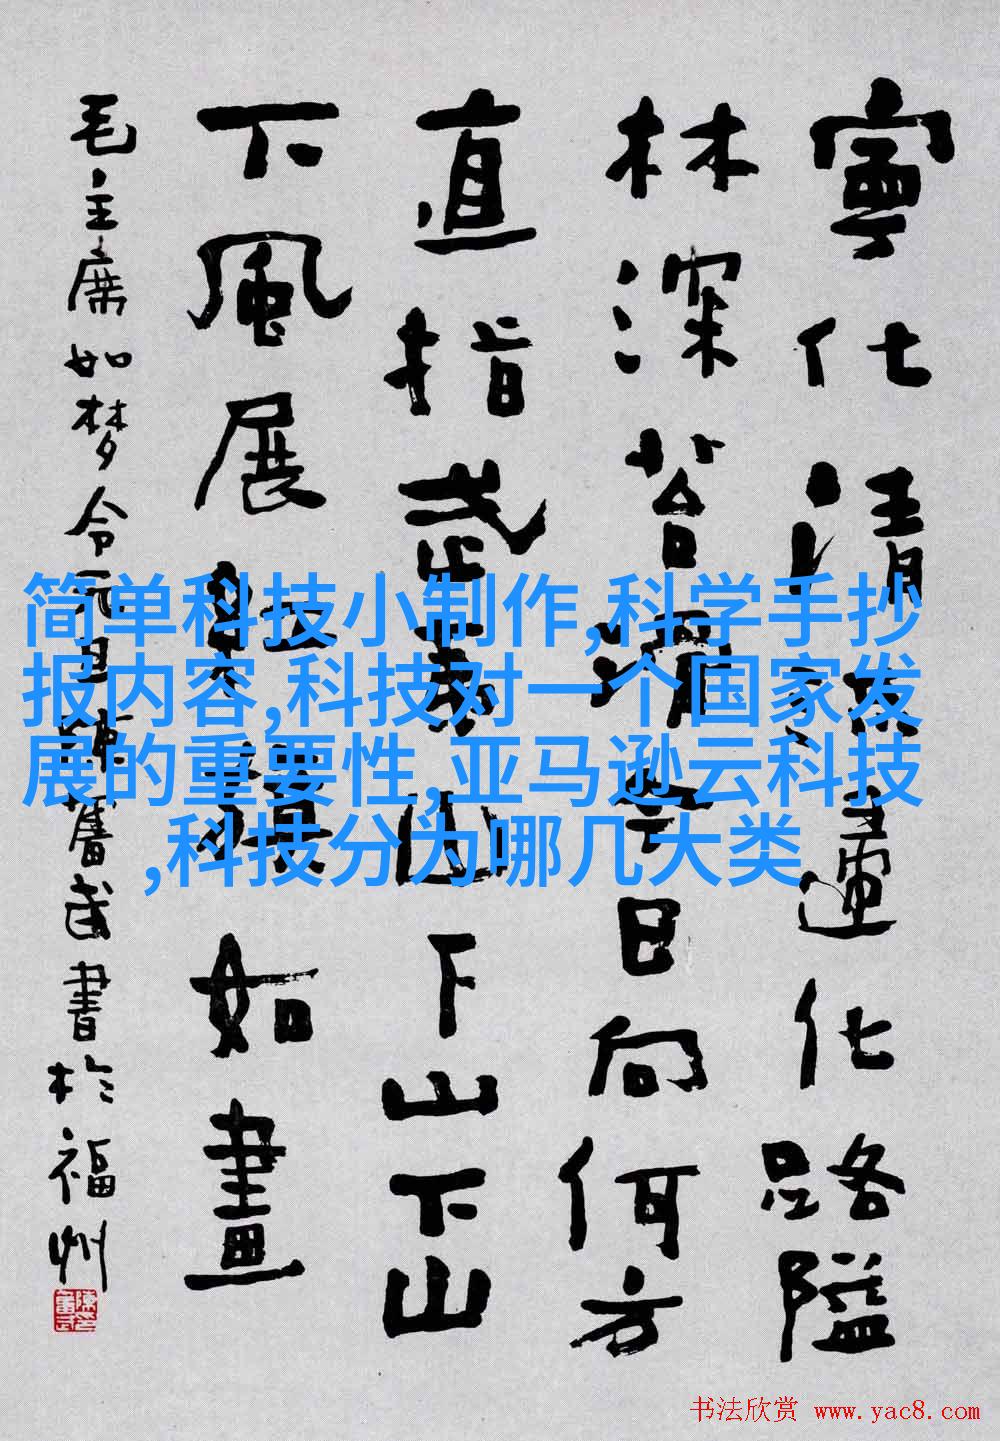 寧化清流歸化路隘
林深苔滑今日向何方
直指武夷山下山下山
下風展紅旗如畫
毛主席如梦令元旦陳奮武書於福州
简单科技小制作,科学手抄
报内容,科技对一个国家发
展的重要性,亚马逊云科技
,科技分为哪几大类
书法欣赏 www.yac8.com